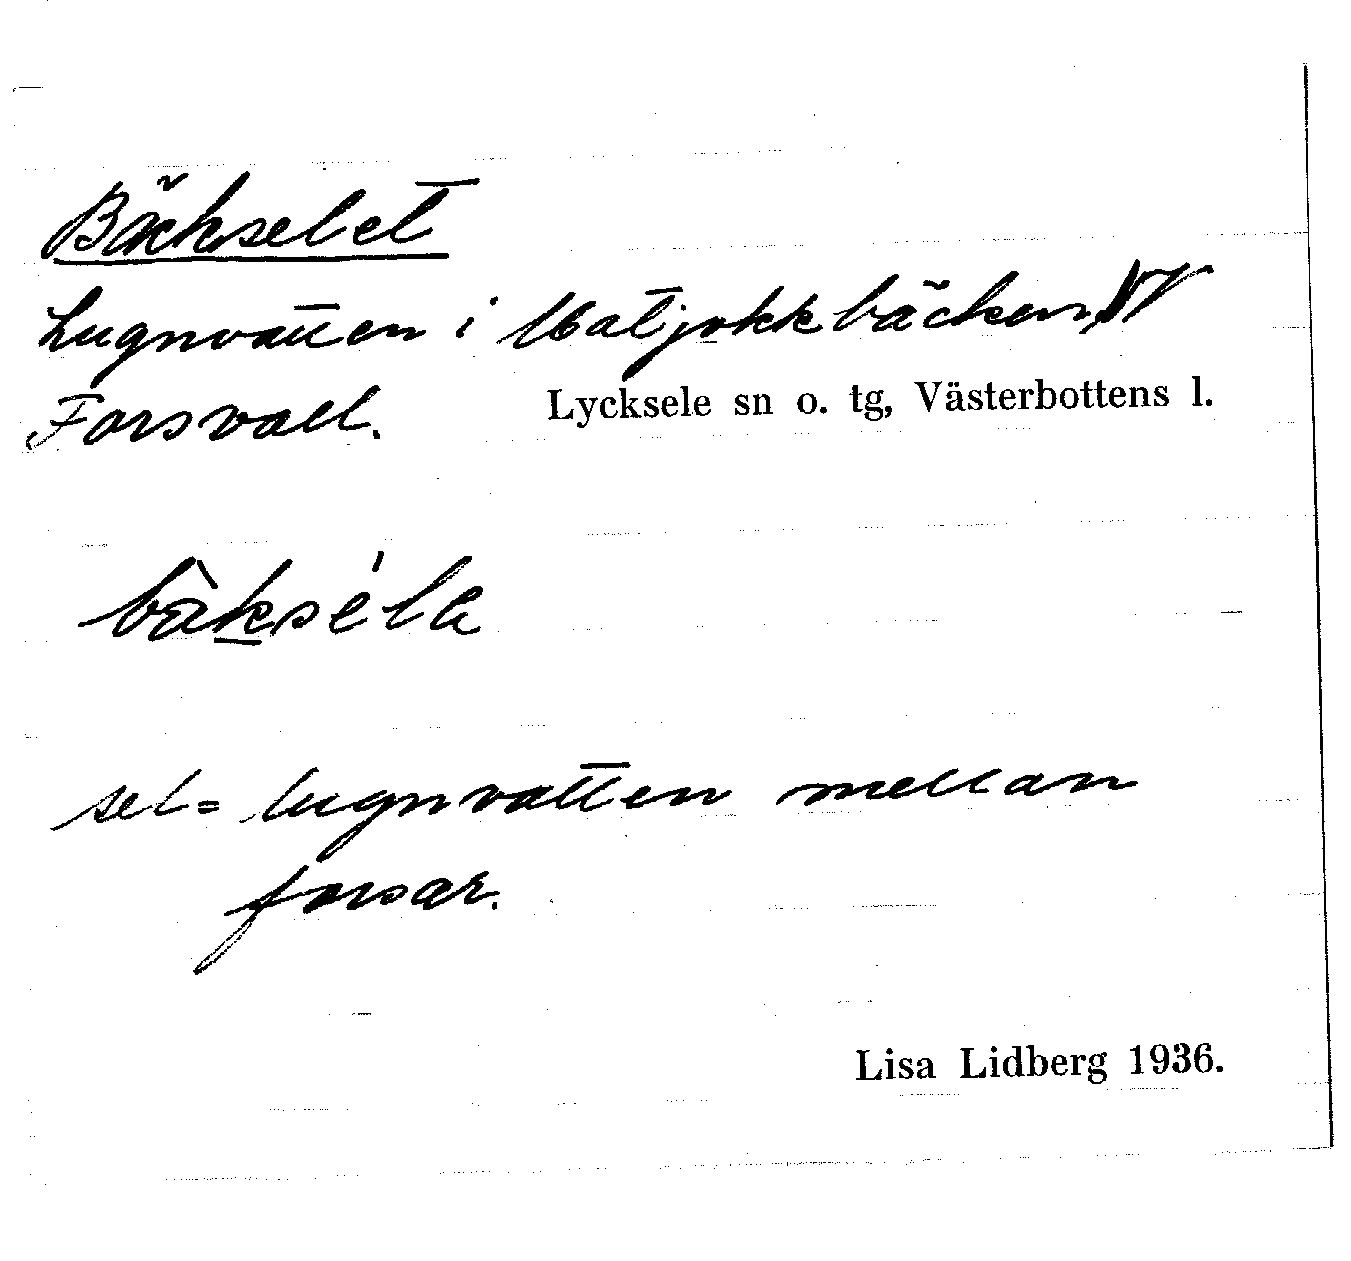 Bäckselet
Lugnvatten i Matjokkbäcken, V
Forsvall. Lycksele sn o. tg, Västerbottens l.
bàkséla
sel = lugnvatten mellan
forsar.
Lisa Lidberg 1936.